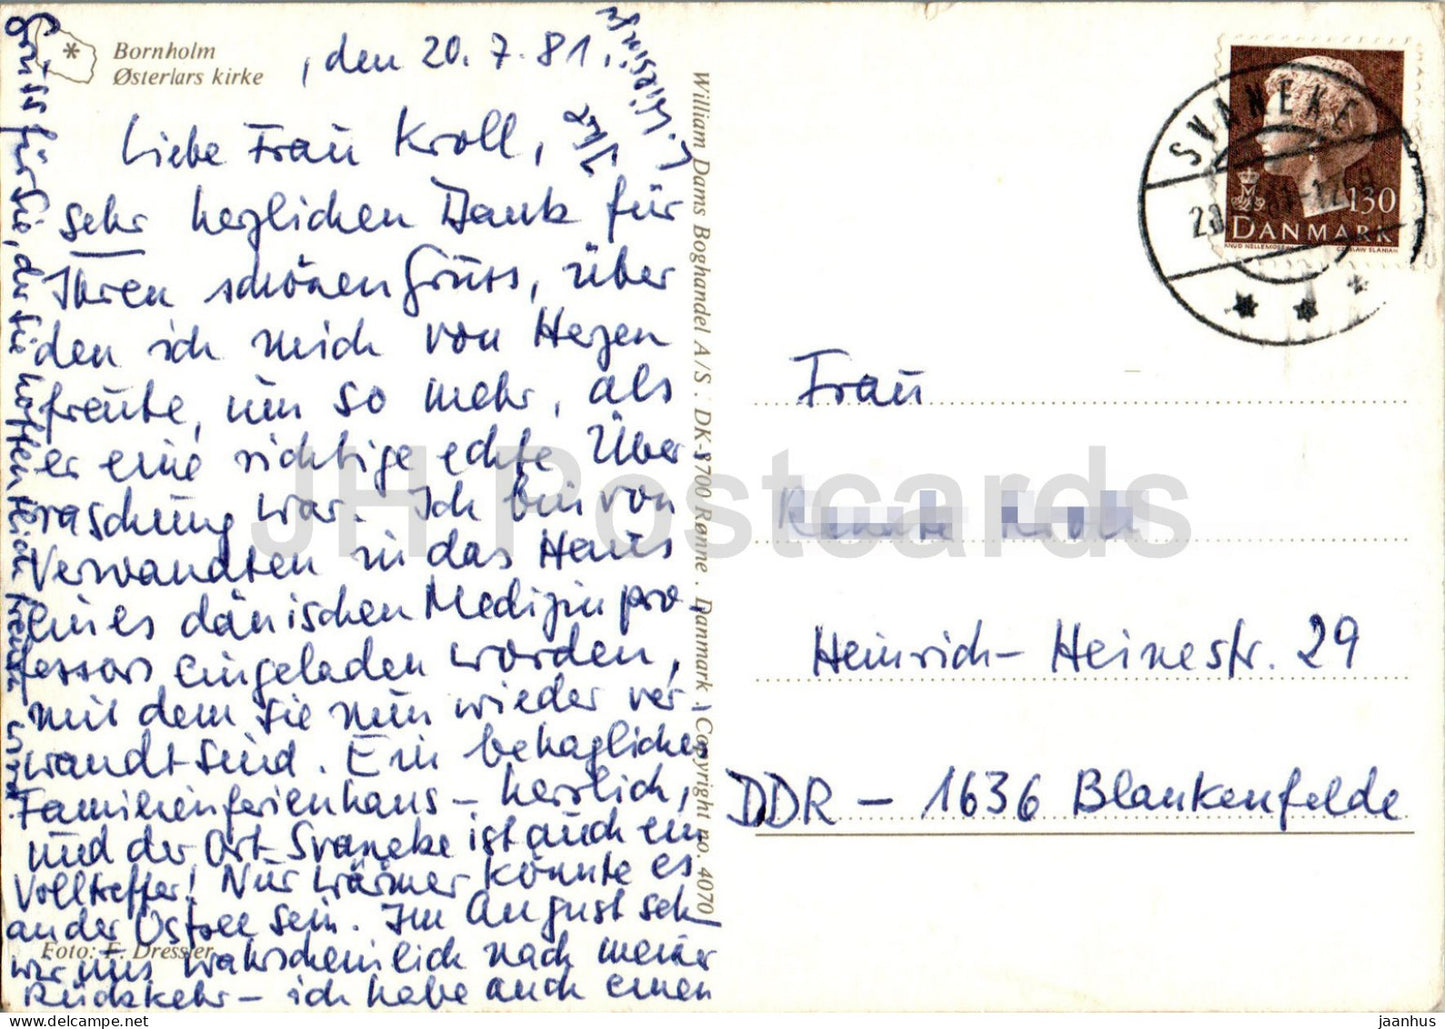 Bornholm
Østerlars kirke
, den 20. 7. 81.
Liebe Frau Kroll,
sehr herzlichen Dank für
Ihren schönen Gruss, über
den ich mich von Herzen
freute, um so mehr, als
er eine richtige echte Über
raschung war. Ich bin von
Verwandten in das Haus
eines dänischen Medizinpro-
fessors eingeladen worden,
mit dem sie nun wieder ver-
wandt sind. Ein behagliches
Familienferienhaus – herrlich,
und der Ort Svaneke ist auch ein
Volltreffer! Nur wärmer könnte es
an der Ostsee sein. Im August seh
wir uns wahrscheinlich nach meiner
Rückkehr – ich habe auch einen
Gruss für Sie, den Sie
sind
Ihr
Foto: F. Dressler
William Dams Boghandel A/S . DK-3700 Rønne . Danmark . Copyright no. 4070
SVANEKE
130
DANMARK
Frau
Renate Kroll
Heinrich-Heinestr. 29
DDR – 1636 Blankenfelde
JH Postcards
jaanhus